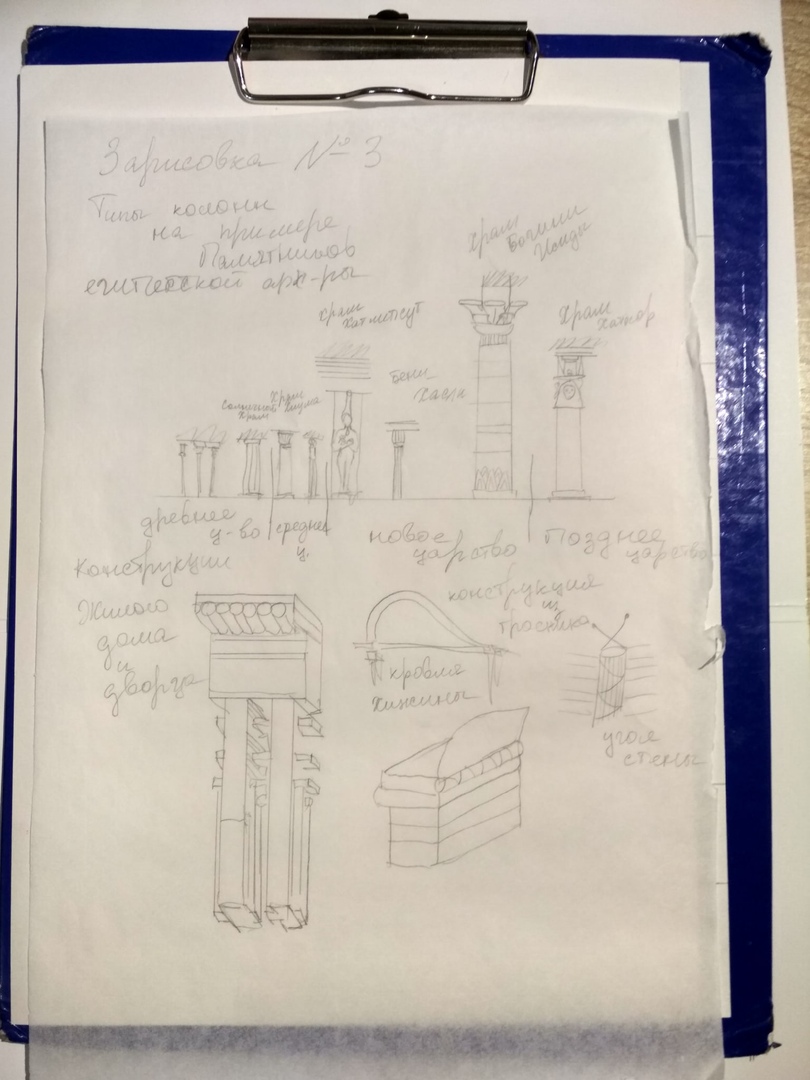 Зарисовка № 3
Типы колонн
на примере
Памятников
египетской арх-ры
Храм
Богини
Исиды
Храм
Хатхор
Храм
Хатшепсут
Бени
Хасан
Солнечный
Храм
Храм
древнее
ц-во
среднее
ц.
новое
царство
Позднее
царство
Конструкции
Жилого
дома
и
дворца
конструкция
из
тросника
кровля
хижины
угол
стены